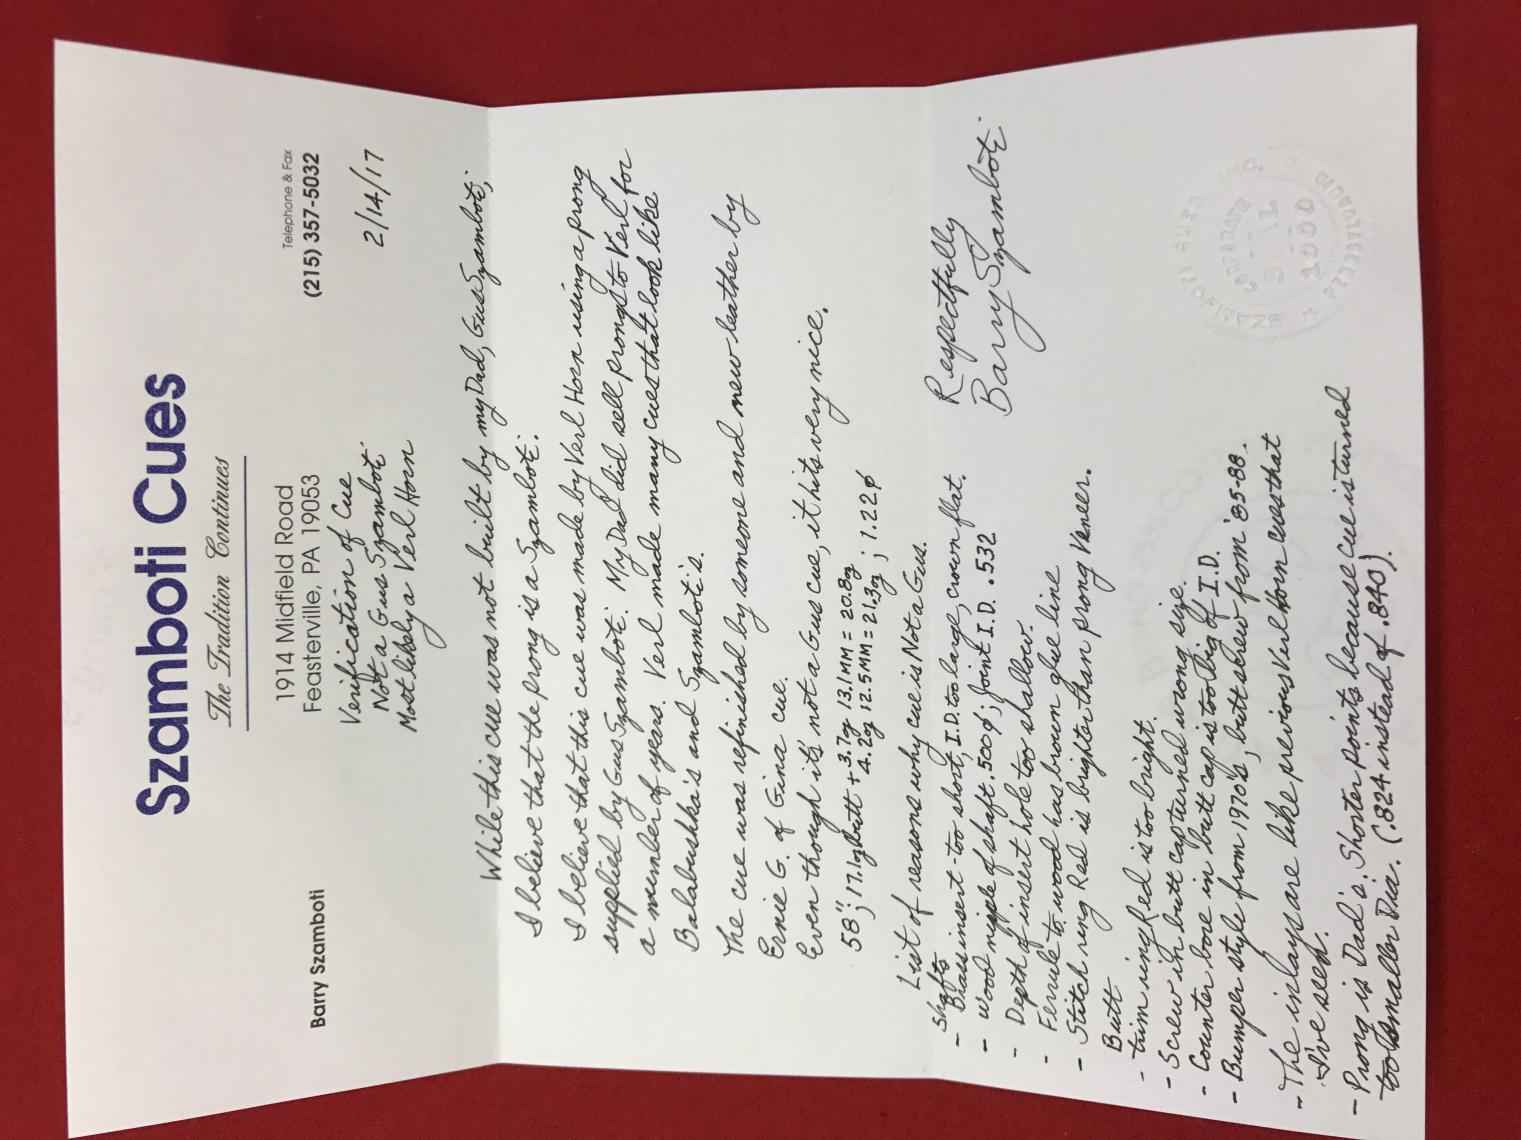 Szamboti Cues
The Tradition Continues
Barry Szamboti
1914 Midfield Road
Feasterville, PA 19053
Telephone & Fax
(215) 357-5032
Verification of Cue
Not a Gus Szamboti
Most likely a Verl Horn
2/14/17
While this cue was not built by my Dad, Gus Szamboti,
I believe that the prong is a Szamboti.
I believe that this cue was made by Verl Horn using a prong
supplied by Gus Szamboti. My Dad did sell prongs to Verl for
a number of years. Verl made many cues that look like
Balabushka's and Szamboti's.
The cue was refinished by someone and new leather by
Ernie G. of Gina cue.
Even though it's not a Gus cue, it hits very nice.
58"; 17.1oz butt + 3.7oz 13.1MM = 20.8oz
4.2oz 12.5MM = 21.3oz ; 1.22¢
List of reasons why cue is Not a Gus.
Shafts
- Brass insert - too short, I.D. too large, crown flat.
- Wood nipple of shaft .500¢; Joint I.D. .532
- Depth of insert hole too shallow.
- Ferrule to wood has brown glue line
- Stitch ring Red is brighter than prong Veneer.
Butt
- trim ring Red is too bright.
- Screw in butt cap turned wrong size.
- Counter bore in butt cap is too big of I.D.
- Bumper style from 1970's, butt screw from '85-88.
- The inlays are like previous Verl Horn cues that
I've seen.
- Prong is Dad's. Shorter points because cue is turned
to smaller Dia. (.824 instead of .840).
Respectfully
Barry Szamboti
SEAL
2000
PENNSYLVANIA